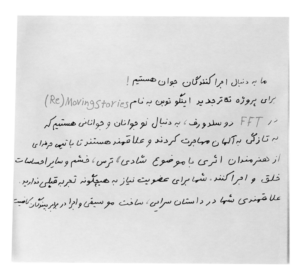 ما به دنبال اجرا کنندگان جوان هستیم !
برای پروژه تئاتر جدید اینگو توبن به نام (Re)MovingStories
در FFT دوسلدورف، به دنبال نوجوانان و جوانانی هستیم که
به تازگی به آلمان مهاجرت کردند و علاقمند هستند تا با تیم حرفه‌ای
از هنرمندان اثری با موضوع شادی، ترس، خشم و سایر احساسات
خلق و اجرا کنند. شما برای عضویت نیاز به هیچگونه تجربه قبلی ندارید
علاقمندی شما در داستان سرایی، ساخت موسیقی و اجرا در برابر بینندگان کافیست